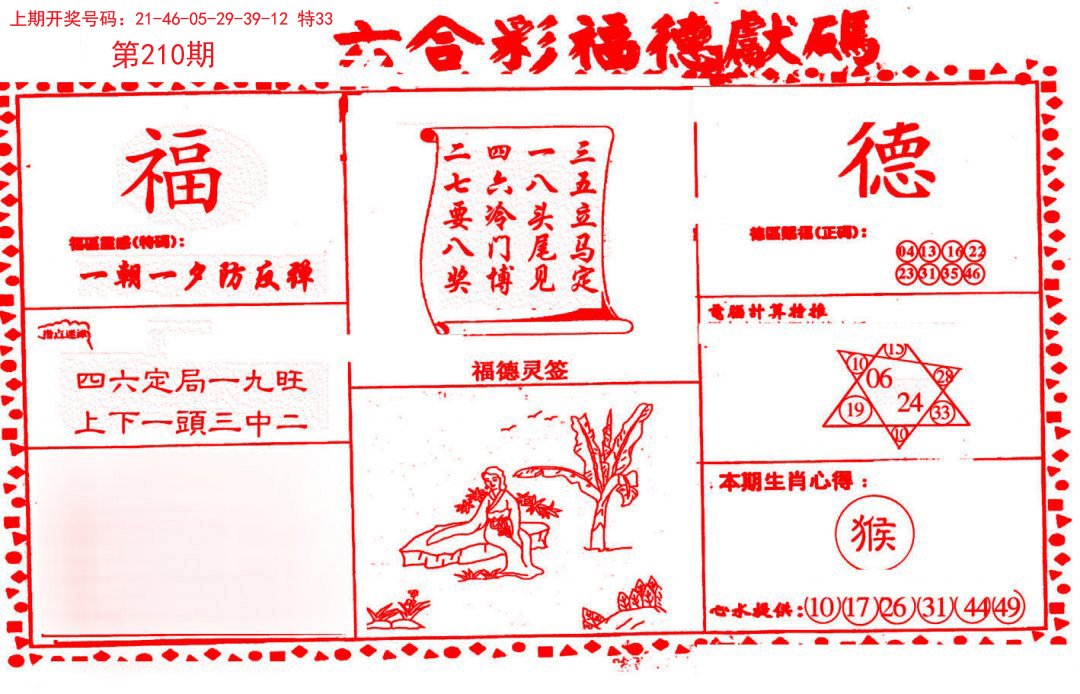 上期开奖号码：21-46-05-29-39-12 特33
第210期
六合彩福德獻碼
福
福區靈感(特码)：
一朝一夕防反弹
四六定局一九旺
上下一頭三中二
三五立马定
一八头尾见
四六冷门博
二七要八奖
福德灵签
德
德區賜福(正码)：
04 13 16 22
23 31 35 46
電腦計算特推
15
10 06 28
19 24 33
10
本期生肖心得：
猴
心水提供：10 17 26 31 44 49